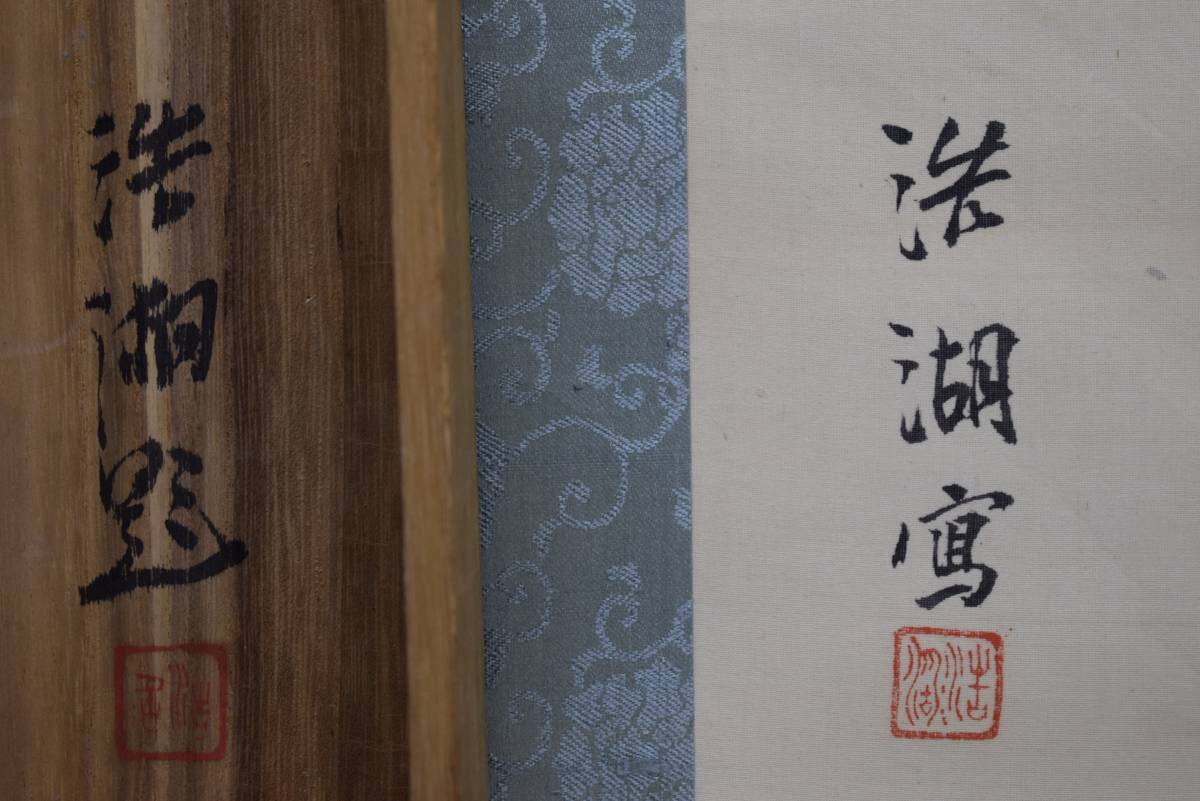 浩湖寫
浩湖
浩湖題